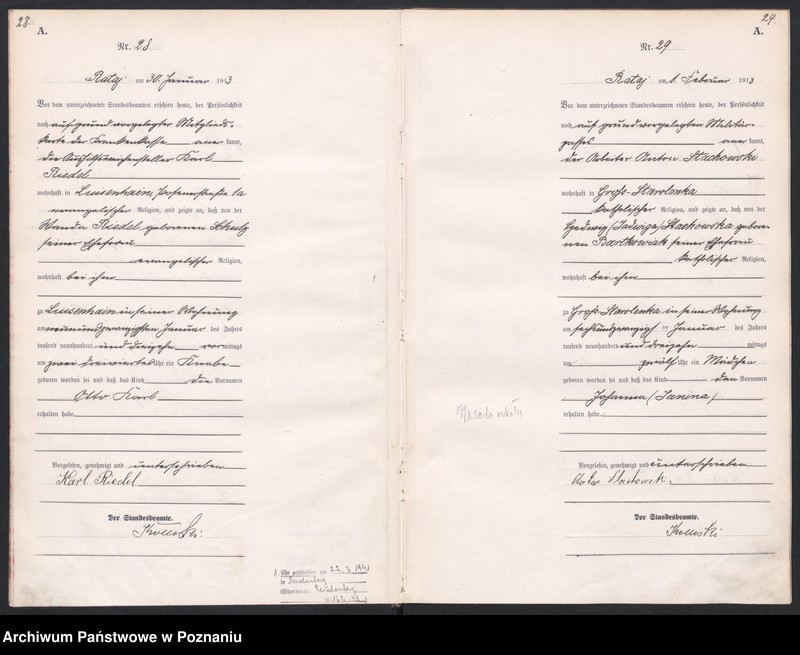 28.
A.
Nr. 28
Rataj am 30. Januar 1913
Vor dem unterzeichneten Standesbeamten erschien heute, der Persönlichkeit
nach auf grund vorgelegter Mitglieds-
karte der Krankenkasse aner kannt,
Karl
Riedel
wohnhaft in Luisenhain, Posenerstraße 1a
evangelischer Religion, und zeigte an, daß von der
Wanda Riedel geborenen Schulz
seiner Ehefrau
evangelischer Religion,
wohnhaft bei ihm
zu Luisenhain in seiner Wohnung
am neunundzwanzigsten Januar des Jahres
tausend neunhundert und dreizehn vormittags
um zwei dreiviertel Uhr ein Knabe
geboren worden sei und daß das Kind die Vornamen
Otto Karl
erhalten habe
Vorgelesen, genehmigt und unterschrieben
Karl Riedel
Der Standesbeamte.
1. Ehe geschlossen am 22.3.1941
in
Standesamt
29.
A.
Nr. 29
Rataj am 1. Februar 1913
Vor dem unterzeichneten Standesbeamten erschien heute, der Persönlichkeit
nach auf grund vorgelegten Militär-
passes aner kannt,
der Arbeiter Anton Stachowski
wohnhaft in Groß-Starolenka
katholischer Religion, und zeigte an, daß von der
Hedwig (Jadwiga) Stachowska gebore-
nen Bartkowiak seiner Ehefrau
katholischer Religion,
wohnhaft bei ihm
zu Groß-Starolenka in seiner Wohnung
am sechsundzwanzigsten Januar des Jahres
tausend neunhundert und dreizehn mittags
um zwölf Uhr ein Mädchen
geboren worden sei und daß das Kind den Vornamen
Johanna (Janina)
erhalten habe
Vorgelesen, genehmigt und unterschrieben
Der Standesbeamte.
Archiwum Państwowe w Poznaniu